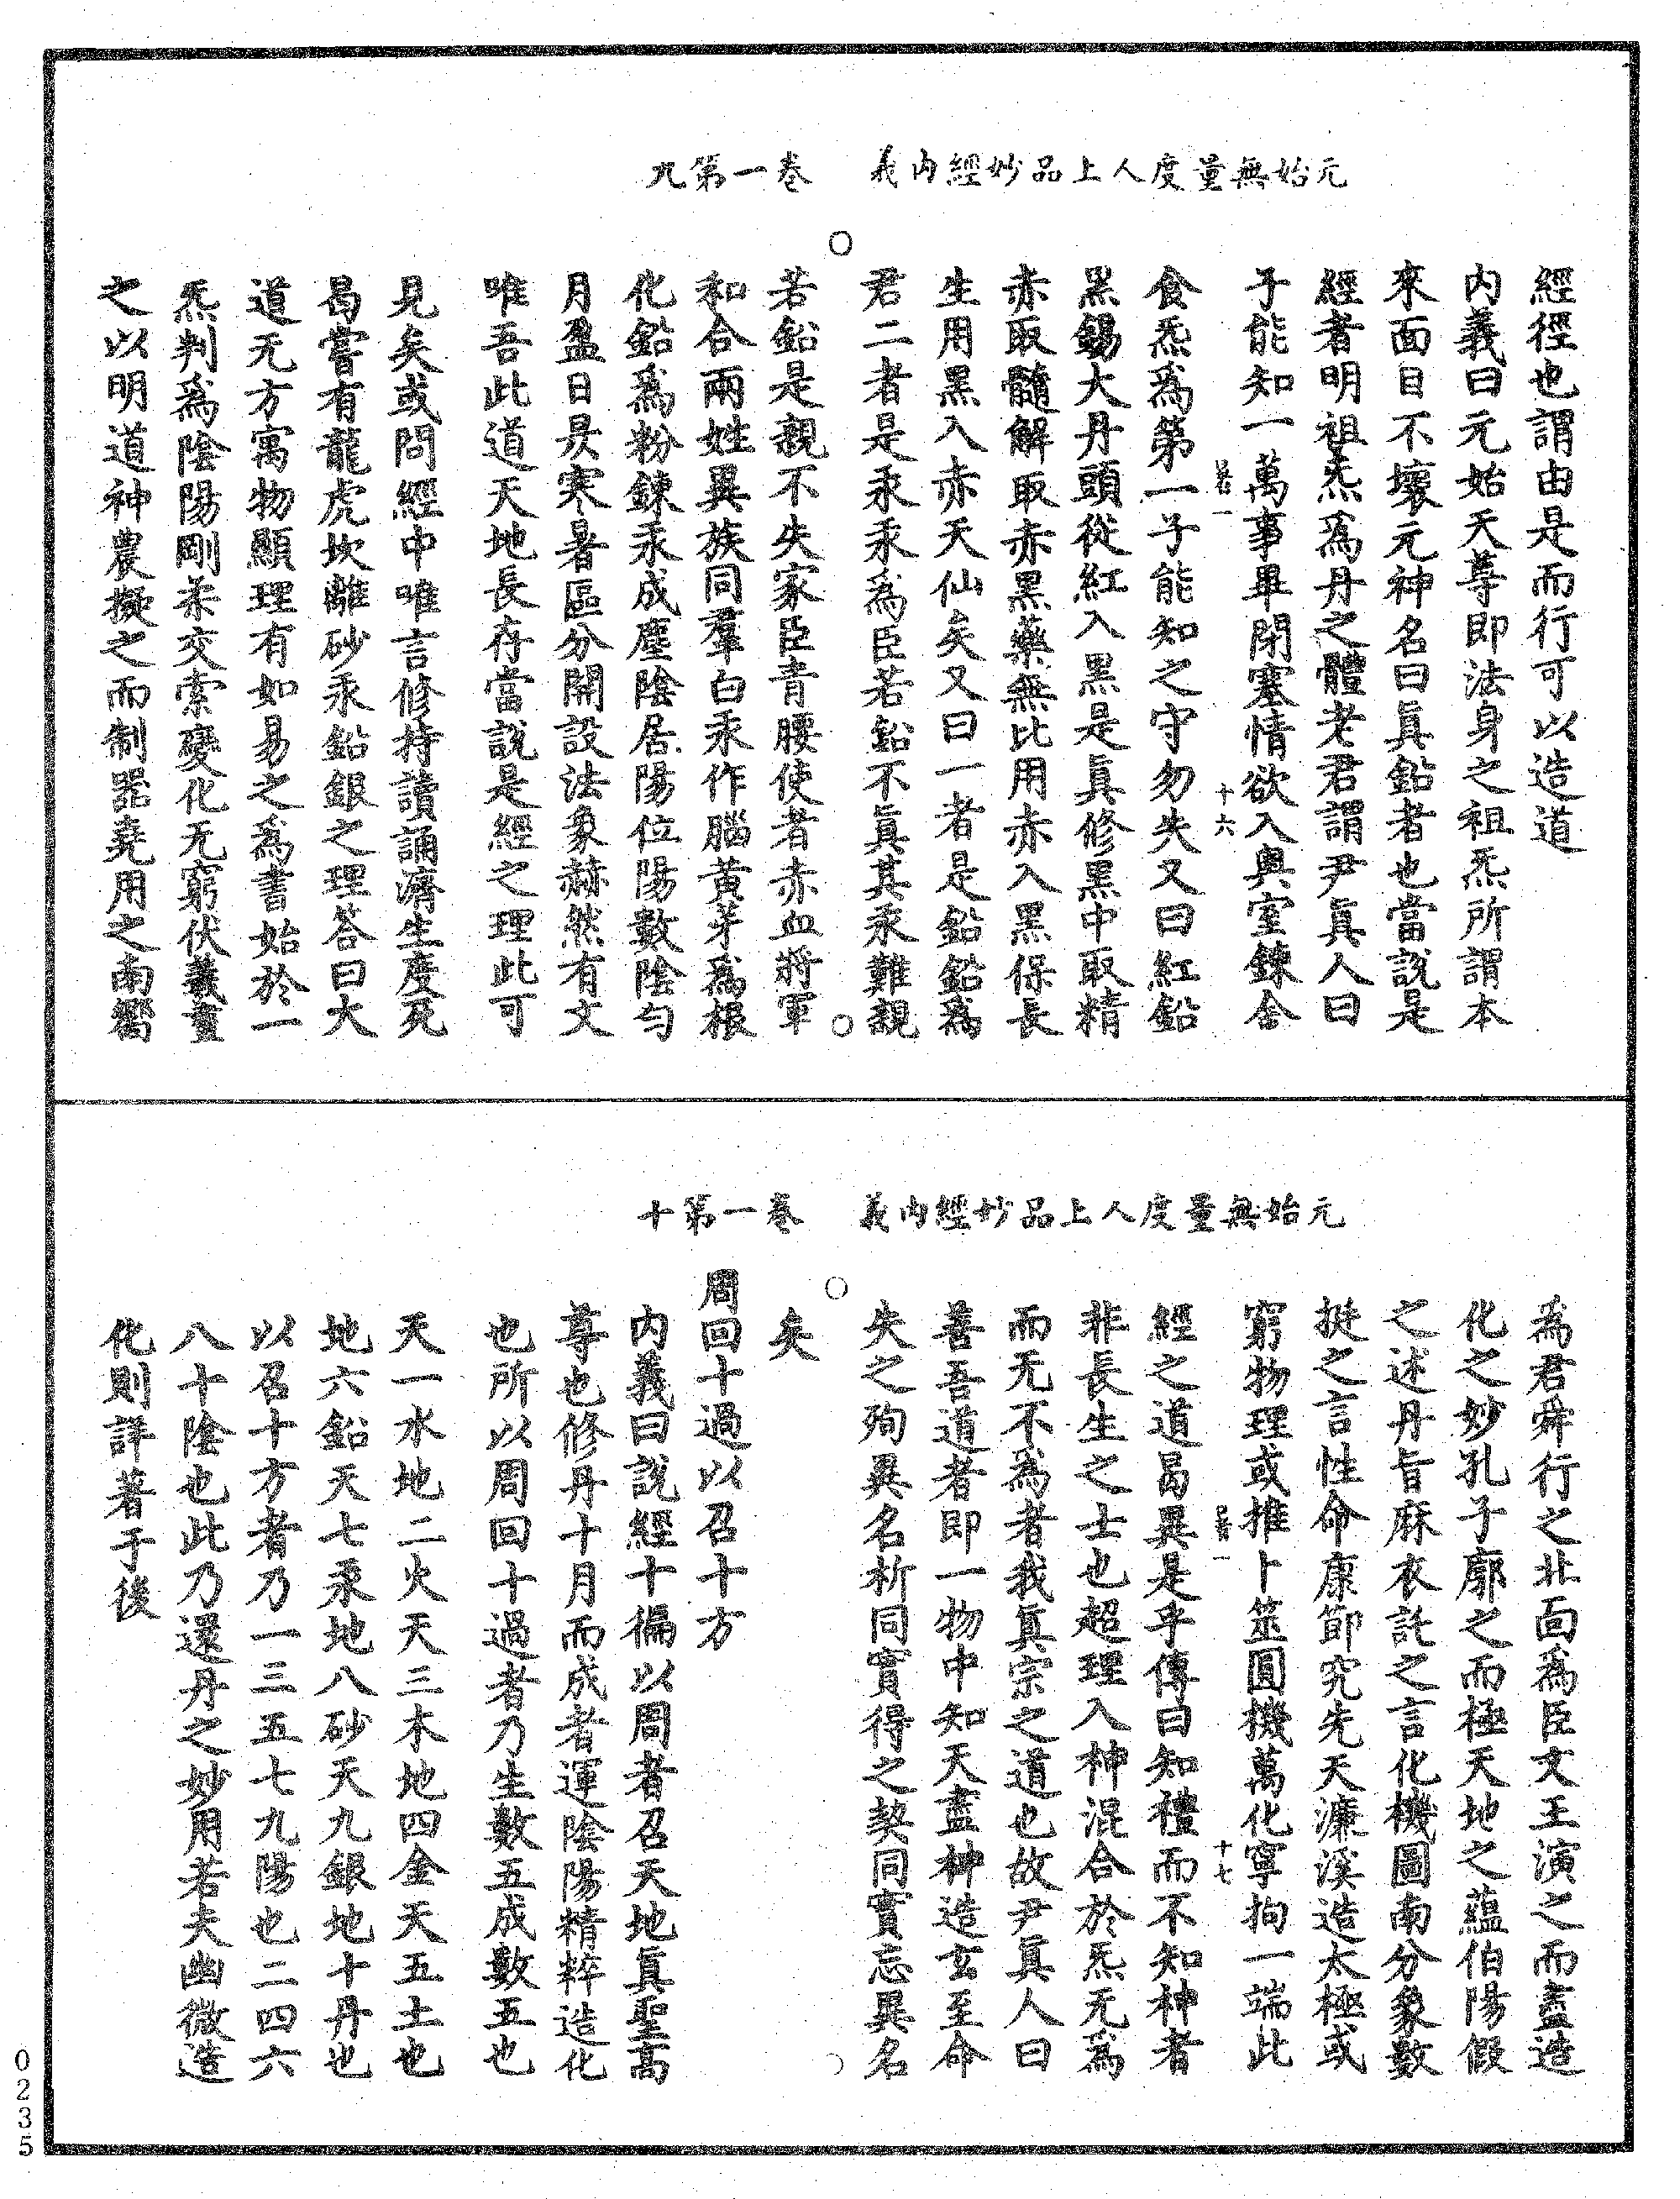 元始無量度人上品妙經內義　卷一第九
經徑也謂由是而行可以造道
內義曰元始天尊即法身之祖炁所謂本
來面目不壞元神名曰眞鉛者也當說是
經者明祖炁爲丹之體老君謂尹眞人曰
子能知一萬事畢閉塞情欲入奧室鍊舍
十六
食炁爲第一子能知之守勿失又曰紅鉛
黑錫大丹頭從紅入黑是眞修黑中取精
赤取髓解取赤黑藥無比用赤入黑保長
生用黑入赤天仙矣又曰一者是鉛鉛爲
君二者是汞汞爲臣若鉛不眞其汞難親
若鉛是親不失家臣青腰使者赤血將軍
和合兩姓異族同羣白汞作腦黃芽爲根
化鉛爲粉鍊汞成塵陰居陽位陽數陰勻
月盈日昃寒暑區分開設法象赫然有文
唯吾此道天地長存當說是經之理此可
見矣或問經中唯言修持讀誦濟生度死
曷嘗有龍虎坎離砂汞鉛銀之理答曰大
道无方寓物顯理有如易之爲書始於一
炁判爲陰陽剛柔交索變化无窮伏羲畫
之以明道神農擬之而制器堯用之南嚮
元始無量度人上品妙經內義　卷一第十
爲君舜行之北面爲臣文王演之而盡造
化之妙孔子廓之而極天地之蘊伯陽假
之述丹旨麻衣託之言化機圖南分象數
挺之言性命康節究先天濂溪造太極或
窮物理或推卜筮圓機萬化寧拘一端此
十七
經之道曷異是乎傳曰知禮而不知神者
非長生之士也超理入神混合於炁无爲
而无不爲者我眞宗之道也故尹眞人曰
善吾道者即一物中知天盡神造玄至命
失之殉異名析同實得之契同實忘異名
矣
周回十過以召十方
內義曰說經十徧以周者召天地眞聖高
尊也修丹十月而成者運陰陽精粹造化
也所以周回十過者乃生數五成數五也
天一水地二火天三木地四金天五土也
地六鉛天七汞地八砂天九銀地十丹也
以召十方者乃一三五七九陽也二四六
八十陰也此乃還丹之妙用若夫幽微造
化則詳著于後
0235